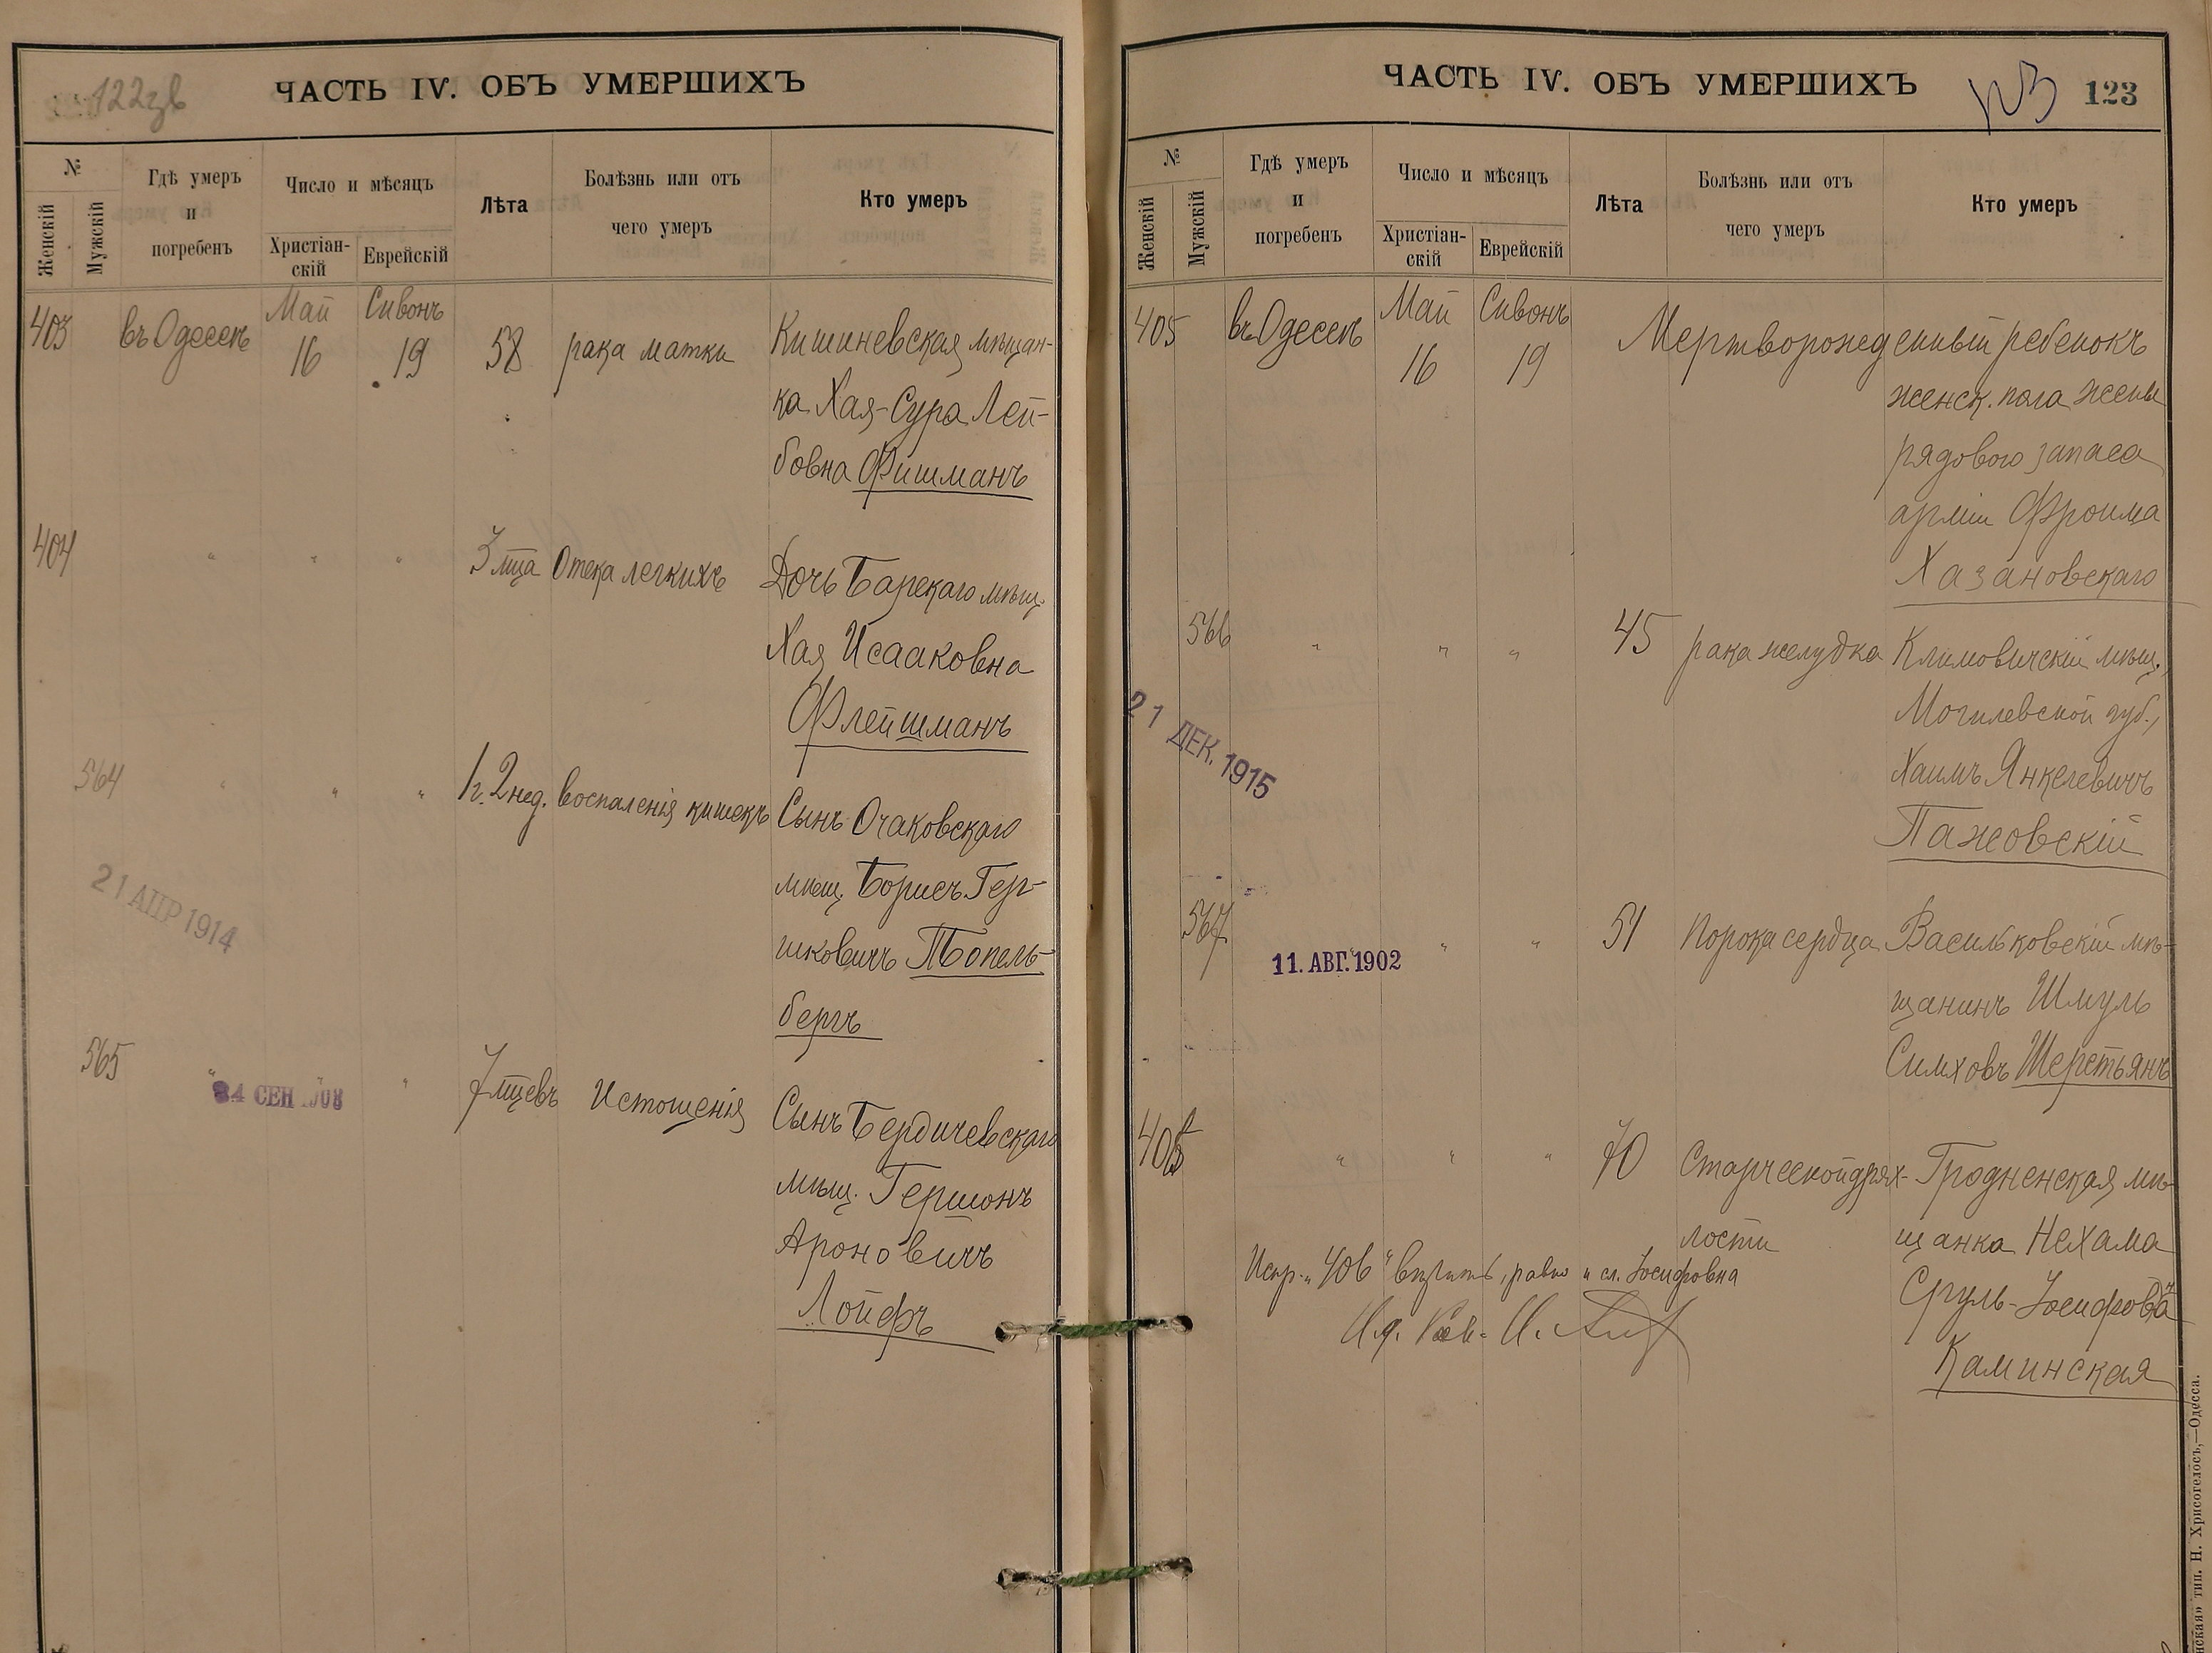 122зв
ЧАСТЬ IV. ОБЪ УМЕРШИХЪ
№
Женскій
Мужскій
Гдѣ умеръ
и
погребенъ
Число и мѣсяцъ
Христіан-
скій
Еврейскій
Лѣта
Болѣзнь или отъ
чего умеръ
Кто умеръ
403 въ Одессѣ Май 16 Сивонъ 19 58 рака матки Кишиневская мѣщан-
ка Хая-Сура Лей-
бовна Фишманъ
404 " " " 3 мца Отека легкихъ Дочь Барскаго мѣщ.
Хая Исааковна
Флейшманъ
564 " " " 1 г. 2 нед. воспаленія кишекъ Сынъ Очаковскаго
мѣщ. Борисъ Гер-
шковичъ Топель-
бергъ
21 АПР 1914
565 " " " 7 мцевъ Истощенія Сынъ Бердичевскаго
24 СЕН 1908
мѣщ. Гершонъ
Ароновичъ
Лойфъ
ЧАСТЬ IV. ОБЪ УМЕРШИХЪ
123
№
Женскій
Мужскій
Гдѣ умеръ
и
погребенъ
Число и мѣсяцъ
Христіан-
скій
Еврейскій
Лѣта
Болѣзнь или отъ
чего умеръ
Кто умеръ
405 въ Одессѣ Май 16 Сивонъ 19 Мертворожденный ребенокъ
женск. пола жены
рядового запаса
арміи Фроима
Хазановскаго
566 " " " 45 рака желудка Климовичскій мѣщ.
Могилевской губ.,
Хаимъ Янкелевичъ
Пажовскій
21 ДЕК. 1915
567 " " " 51 Порока сердца Васильковскій мѣ-
11. АВГ. 1902
щанинъ Шмуль
Симховъ Шерстьянъ
406 " " " 70 Старческой дрях- Гродненская мѣ-
лости щанка Нехама
Сруль-Іосифовна
Каминская
Испр. "406" вѣрить, равно и сл. Іосифовна
И. д. Рав.
нская» тип. Н. Хрисогелосъ,—Одесса.